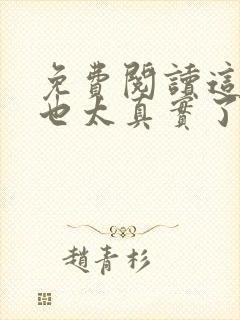 免費閱讀這
也太真實了
趙青杉